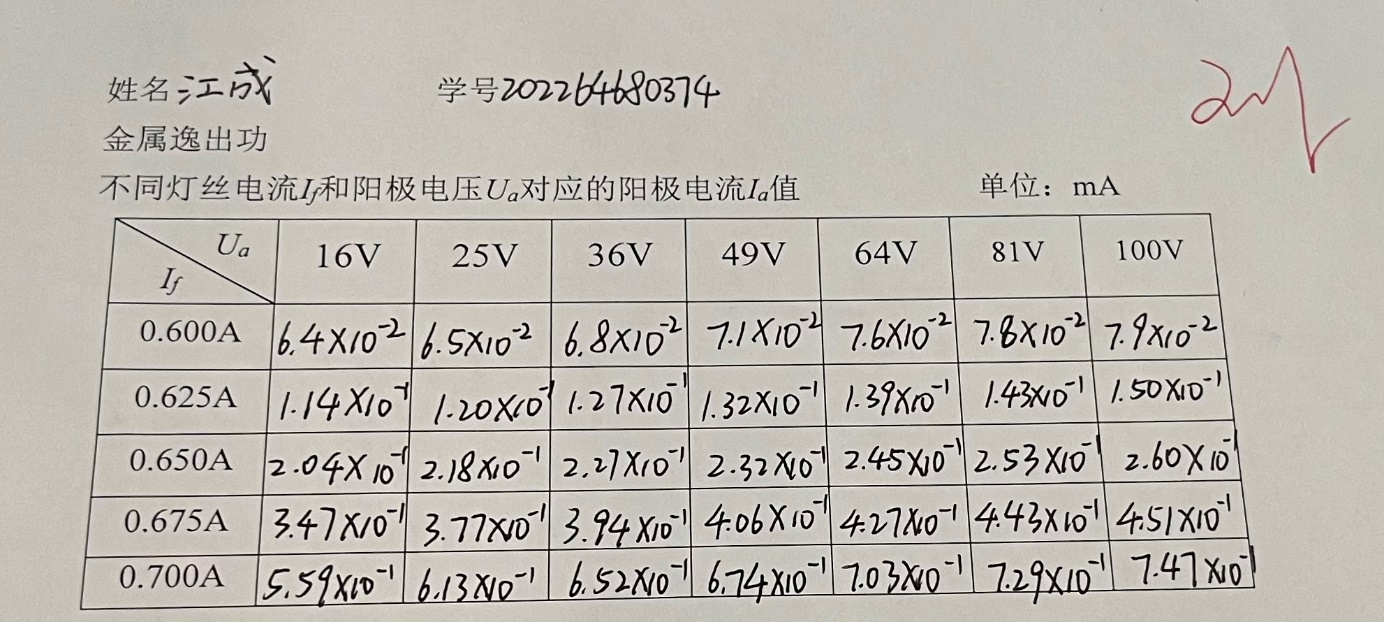 姓名 江成 学号 202264680374
金属逸出功
不同灯丝电流If和阳极电压Ua对应的阳极电流Ia值 单位：mA
Ua If 16V 25V 36V 49V 64V 81V 100V
0.600A 6.4×10⁻² 6.5×10⁻² 6.8×10⁻² 7.1×10⁻² 7.6×10⁻² 7.8×10⁻² 7.9×10⁻²
0.625A 1.14×10⁻¹ 1.20×10⁻¹ 1.27×10⁻¹ 1.32×10⁻¹ 1.39×10⁻¹ 1.43×10⁻¹ 1.50×10⁻¹
0.650A 2.04×10⁻¹ 2.18×10⁻¹ 2.27×10⁻¹ 2.32×10⁻¹ 2.45×10⁻¹ 2.53×10⁻¹ 2.60×10⁻¹
0.675A 3.47×10⁻¹ 3.77×10⁻¹ 3.94×10⁻¹ 4.06×10⁻¹ 4.27×10⁻¹ 4.43×10⁻¹ 4.51×10⁻¹
0.700A 5.59×10⁻¹ 6.13×10⁻¹ 6.52×10⁻¹ 6.74×10⁻¹ 7.03×10⁻¹ 7.29×10⁻¹ 7.47×10⁻¹